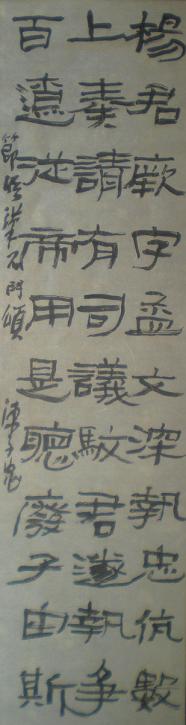 楊君厥字孟文深執忠伉數
上奏請有司議駮君遂執爭
百遼從帝用是聽廢子由斯
節臨漢石門頌